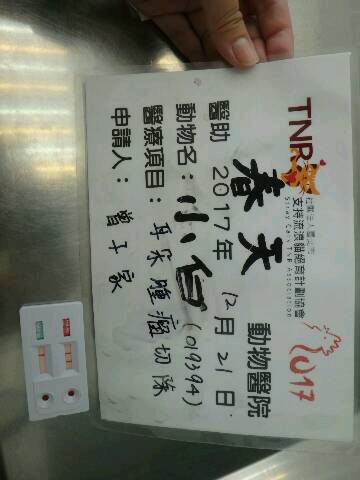 TNR
支持流浪貓絕育計劃協會
Stray Cats TNR Association
2017
春天 動物醫院
醫助 2017年 12月 21日
動物名: 小白 (019394)
醫療項目: 耳朵腫瘤切除
申請人: 曾子家